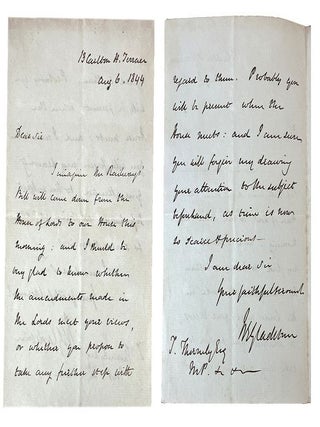 13 Carlton H. Terrace
Aug 6. 1844
Dear Sir
I imagine the Railways
Bill will come down from the
House of Lords to our House this
morning: and I should be
very glad to know whether
the amendments made in
the Lords meet your views,
or whether you propose to
take any further step with
regard to them. Probably you
will be present when the
House meets: and I am sure
you will forgive my drawing
your attention to the subject
beforehand, as time is now
so scarce & precious—
I am dear Sir
Your faithful servant
WEGladstone
T. Thornely Esq
MP.